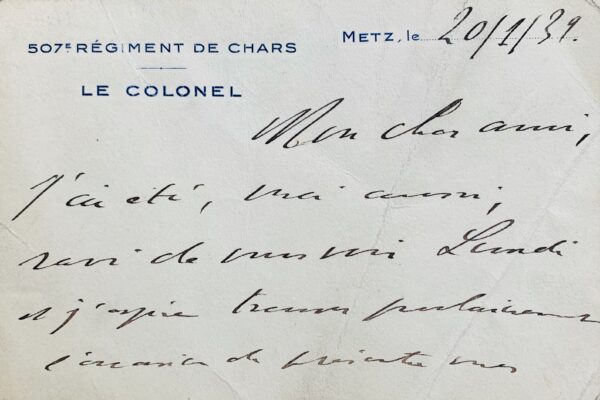 507E RÉGIMENT DE CHARS
METZ, le 20/1/39.
LE COLONEL
Mon cher ami,
J'ai été, moi aussi,
ravi de vous voir Lundi
et j'espère trouver prochainement
l'occasion de présenter mes